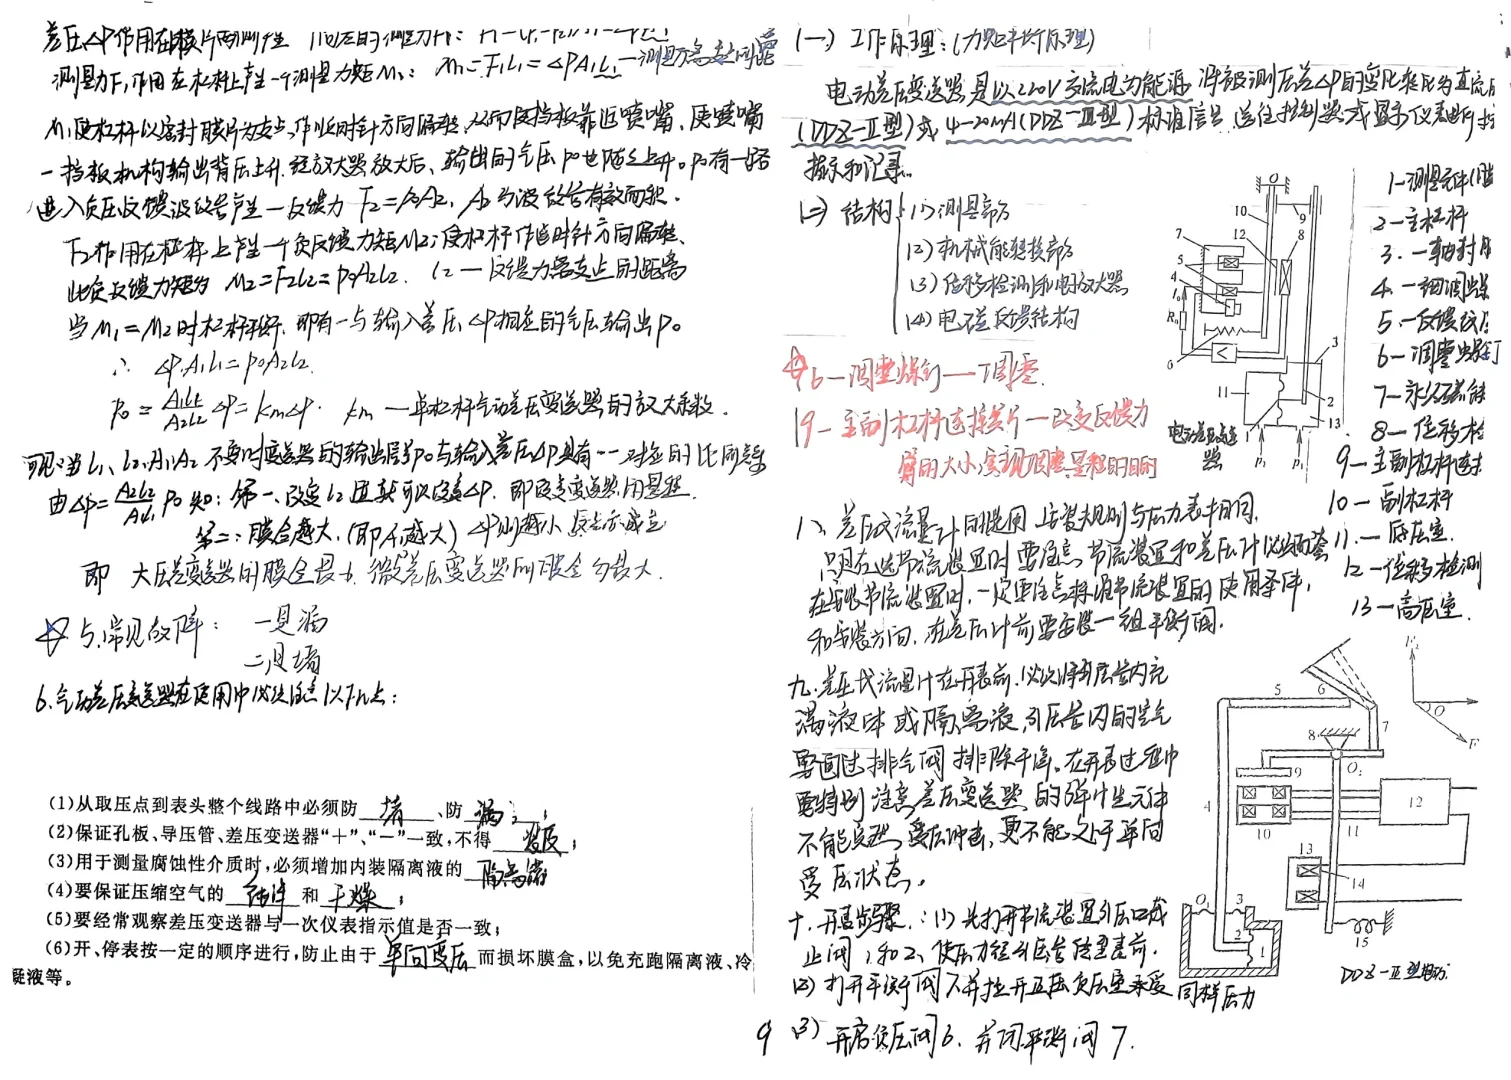 差压ΔP作用在膜片两侧产生
测量力F₁作用在杠杆上产生一个测量力矩M₁: M₁=F₁L₁=ΔPA₁L₁—测量力离支点间距
M₁使杠杆以密封膜片为支点,作逆时针方向偏转,从而使挡板靠近喷嘴、使喷嘴
一挡板机构输出背压上升.经放大器放大后、输出的气压P₀也随之上升。P₀有一路
进入负压反馈波纹管产生一反馈力 F₂=P₀A₂, A₂为波纹管有效面积.
F₂作用在杠杆上产生一个负反馈力矩M₂;使杠杆作顺时针方向偏转、
此负反馈力矩为 M₂=F₂L₂=P₀A₂L₂. L₂—反馈力离支点的距离
当M₁=M₂时杠杆平衡.即有一与输入差压ΔP相应的气压输出P₀
∴ ΔP·A₁L₁=P₀A₂L₂.
P₀=A₁L₁/A₂L₂ ΔP=KmΔP· Km—单杠杆气动差压变送器的放大系数.
可见:当L₁、L₂、A₁、A₂不变时变送器的输出信号P₀与输入差压ΔP具有一一对应的比例关系
由ΔP=A₂L₂/A₁L₁ P₀知:第一、改变L₂
即改变变送器的量程.
第二:膜合越大,(即A₁越大) ΔP则越小
即 大压差变送器的膜合最小.微差压变送器的膜合为最大.
☆5.常见故障: 一是漏
二是堵
6.气动差压变送器在使用中必须注意以下几点:
(1)从取压点到表头整个线路中必须防 堵 、防 漏 ;
(2)保证孔板、导压管、差压变送器“+”、“-”一致,不得 装反;
(3)用于测量腐蚀性介质时,必须增加内装隔离液的 隔离器
(4)要保证压缩空气的 结净 和 干燥 ;
(5)要经常观察差压变送器与一次仪表指示值是否一致;
(6)开、停表按一定的顺序进行,防止由于 单向受压 而损坏膜盒,以免充跑隔离液、冷
凝液等。
9
(一) 工作原理:(力矩平衡原理)
电动差压变送器是以220V交流电为能源 将被测压差ΔP的变化转化为直流
(DDZ-Ⅱ型)或4-20mA(DDZ-Ⅲ型)标准信号 送往控制器或显示仪表进行
指示和记录。
(二) 结构 (1)测量部分
(2)机械能转换部分
(3)位移检测和电放大器
(4)电磁反馈结构
☆6—调整螺钉—丁调零.
19—主副杠杆连接簧片—改变反馈力
臂的大小,实现调整量程的目的
O
10
9
7
12
8
5
4
I₀
R₀
6
3
1
11
2
13
P₁
P₁
电动差压变送
器
1—测量元件(
2—主杠杆
3.—轴封
4.—细调螺
5.—反馈线
6—调零螺钉
7—永久磁
8—位移检
9—主副杠杆连
10—副杠杆
11.—低压室.
12—位移检测
13—高压室.
八、差压式流量计的选用 安装规则与压力表相同.
只是在选节流装置时要注意 节流装置和差压计必须配套
在安装节流装置时,一定要注意标准节流装置的使用条件,
和安装方向.在差压计前要安装一组平衡阀.
九.差压式流量计在开表前.必须将引压管内充
满液体 或隔离液,引压管内的空气
要通过排气阀 排除干净。在开表过程中
要特别注意差压变送器 的弹性元件
不能突然 受压冲击,更不能处于单向
受压状态。
十.开表步骤.:(1)先打开节流装置引压口截
止阀1和2、使压力经引压管传至表前.
(2)打开平衡阀7并打开正压负压室承受同样压力
(3) 开启负压阀6、关闭平衡阀7.
5
6
7
8
O₂
9
10
11
12
4
13
14
15
O₁
3
2
1
F₂
O
F
DDZ-Ⅱ型